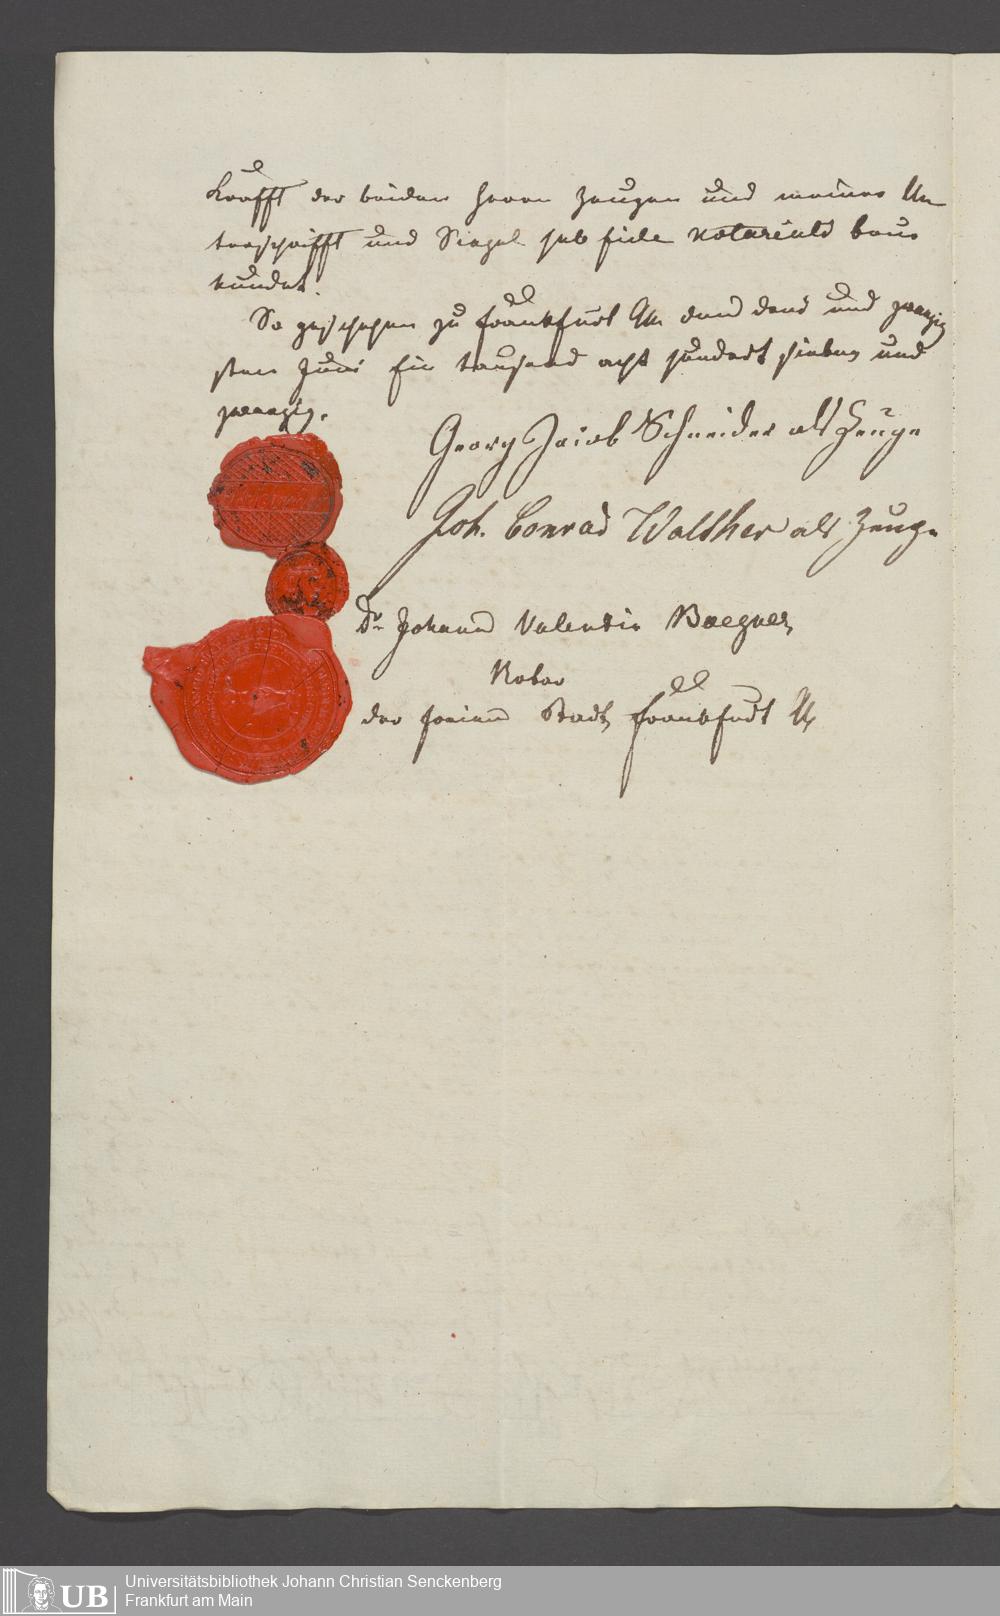 Krafft der beiden Herrn Zeugen und meiner Un
terschrifft und Siegel sub fide notariali beur
kundet.
So geschehen zu Frankfurt M. den drei und zwanzig
sten Juni Ein tausend acht hundert sieben und
zwanzig.
Georg Jacob Schneider als Zeuge
Joh. Conrad Walther als Zeuge
Dr. Johann Valentin
Notar
der freien Stadt Frankfurt M
UB
Universitätsbibliothek Johann Christian Senckenberg
Frankfurt am Main